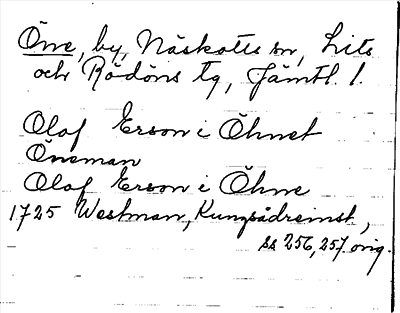 Öne, by, Näskotts sn, Lits
och Rödöns tg, Jämtl. l.
Olof Erson i Öhnet
Öneman
Olof Erson i Öhne
1725 Westman, Kungsådreinst.,
ss 256, 257. orig.